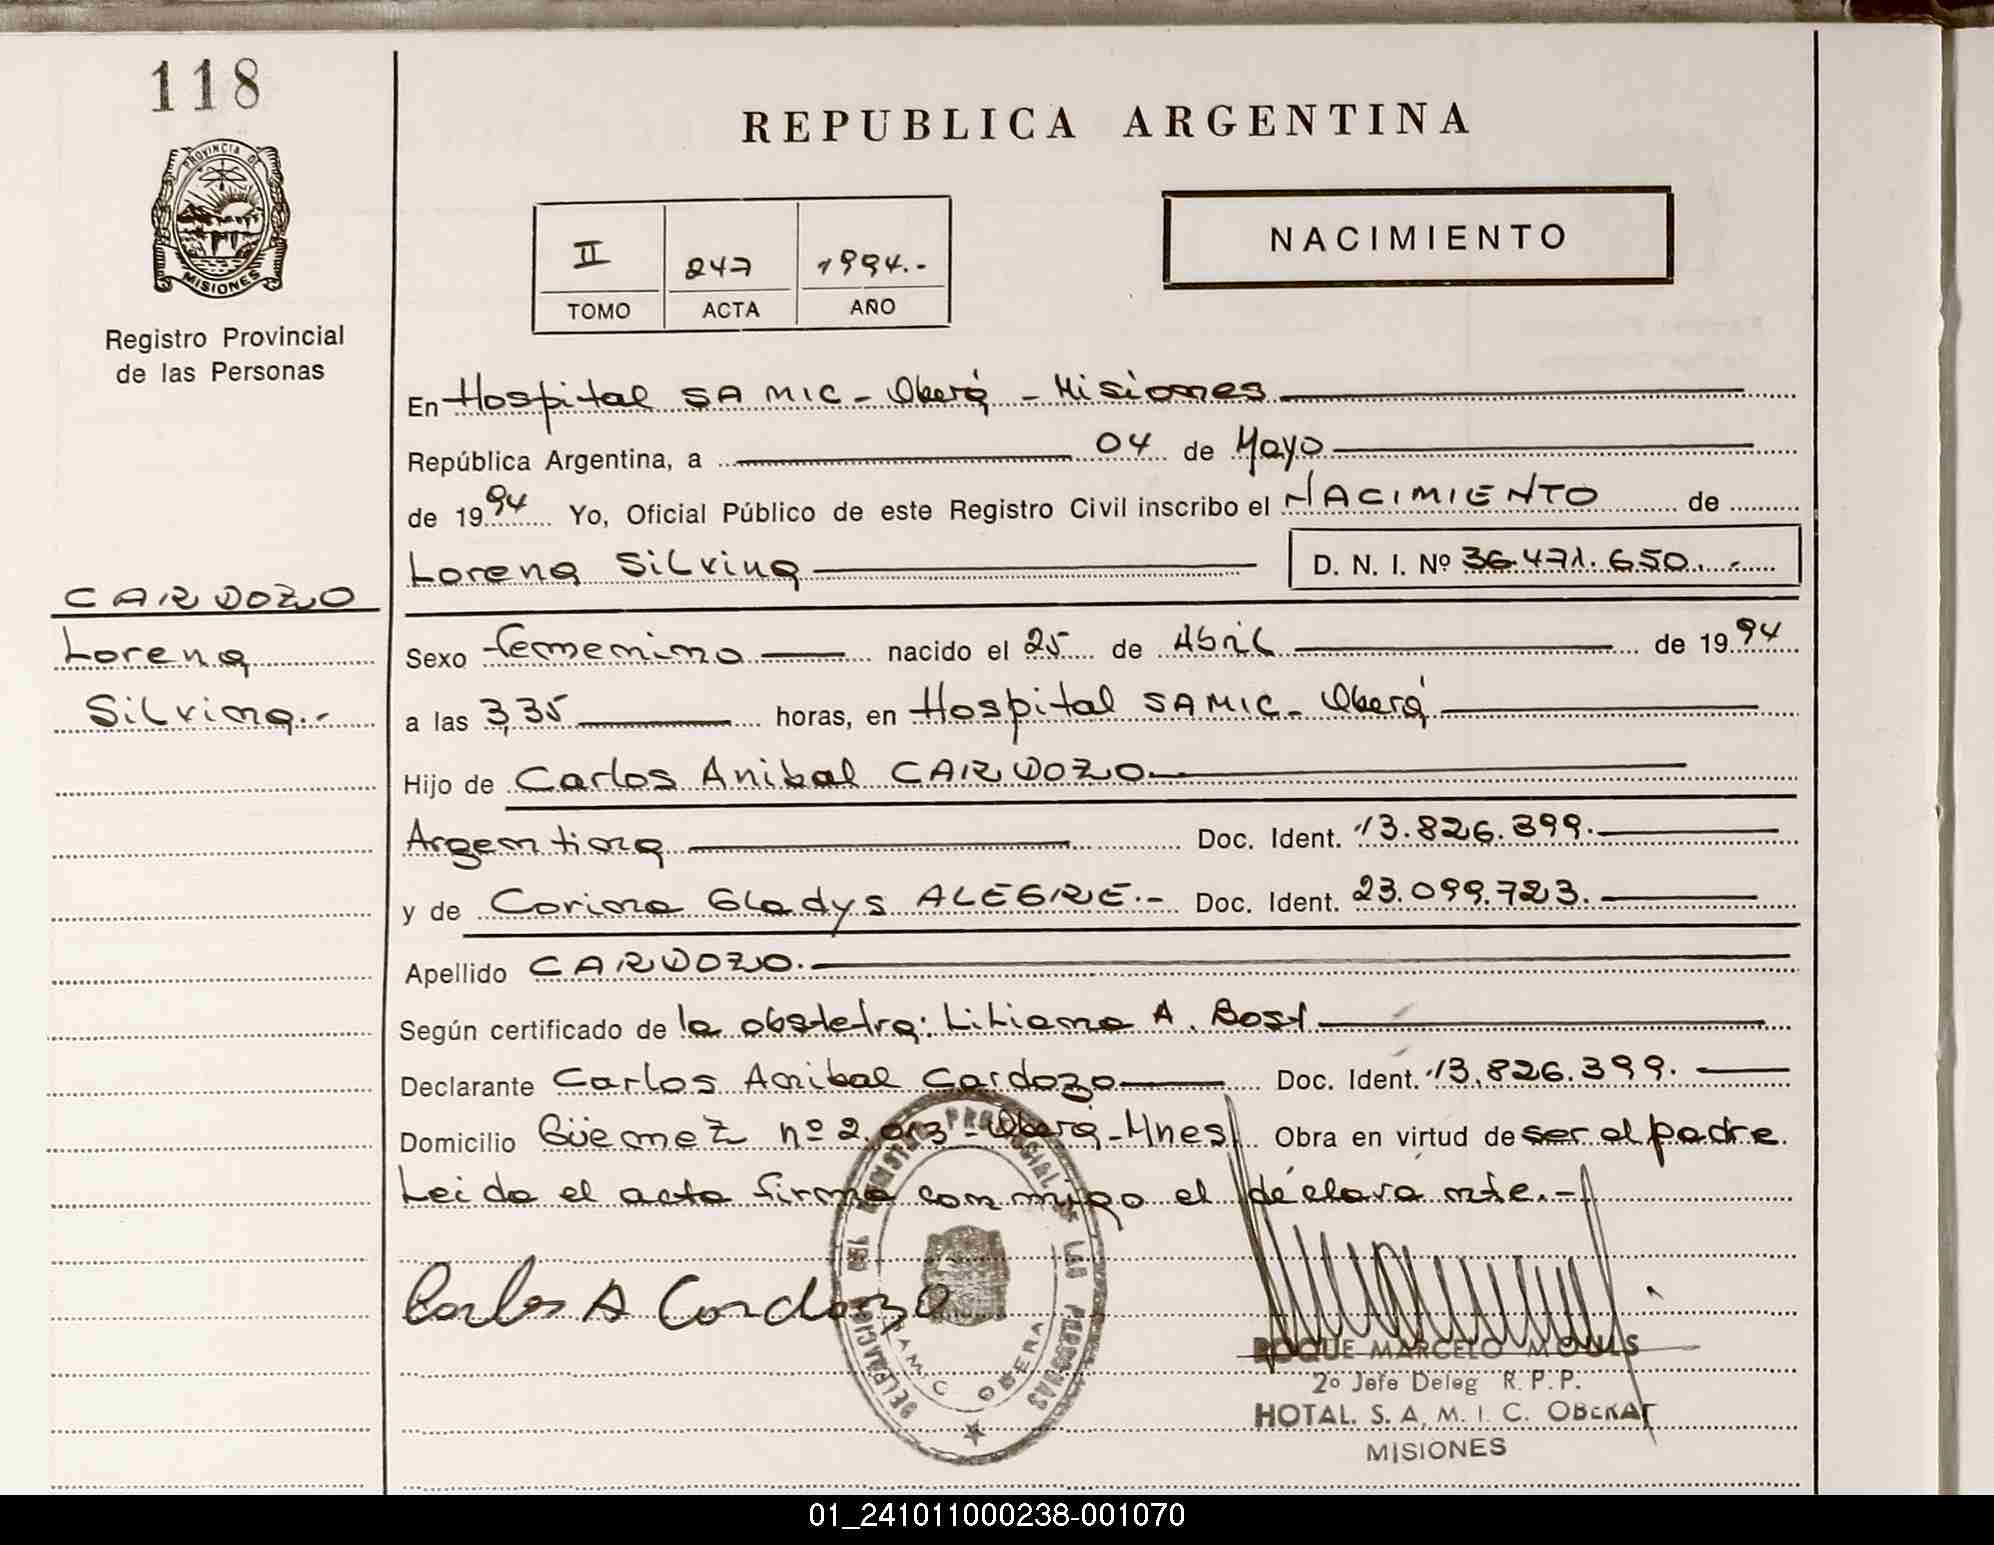 118
PROVINCIA DE
MISIONES
Registro Provincial
de las Personas
CARDOZO
Lorena
Silvina.-
REPUBLICA ARGENTINA
NACIMIENTO
II 247 1994.-
TOMO ACTA AÑO
En Hospital SAMIC - Oberá - Misiones
República Argentina, a 04 de Mayo
de 1994 Yo, Oficial Público de este Registro Civil inscribo el NACIMIENTO de
Lorena Silvina D. N. I. Nº 36.471.650.-
Sexo femenino nacido el 25 de Abril de 1994
a las 3,35 horas, en Hospital SAMIC - Oberá
Hijo de Carlos Anibal CARDOZO
Argentina Doc. Ident. 13.826.399.
y de Corina Gladys ALEGRE.- Doc. Ident. 23.099.723.
Apellido CARDOZO.
Según certificado de la obstetra: Liliana A. Bost
Declarante Carlos Anibal Cardozo Doc. Ident. 13.826.399.
Domicilio Güemez nº 2. - Oberá - Mnes Obra en virtud de ser el padre
Leida el acta firma conmigo el declarante.-
Carlos A Cardozo
DELEGACION DEL REGISTRO PROVINCIAL DE LAS PERSONAS
SAMIC OBERA
ROQUE MARCELO
2º Jefe Deleg R. P. P.
HOTAL. S. A. M. I. C. OBERA
MISIONES
01_241011000238-001070